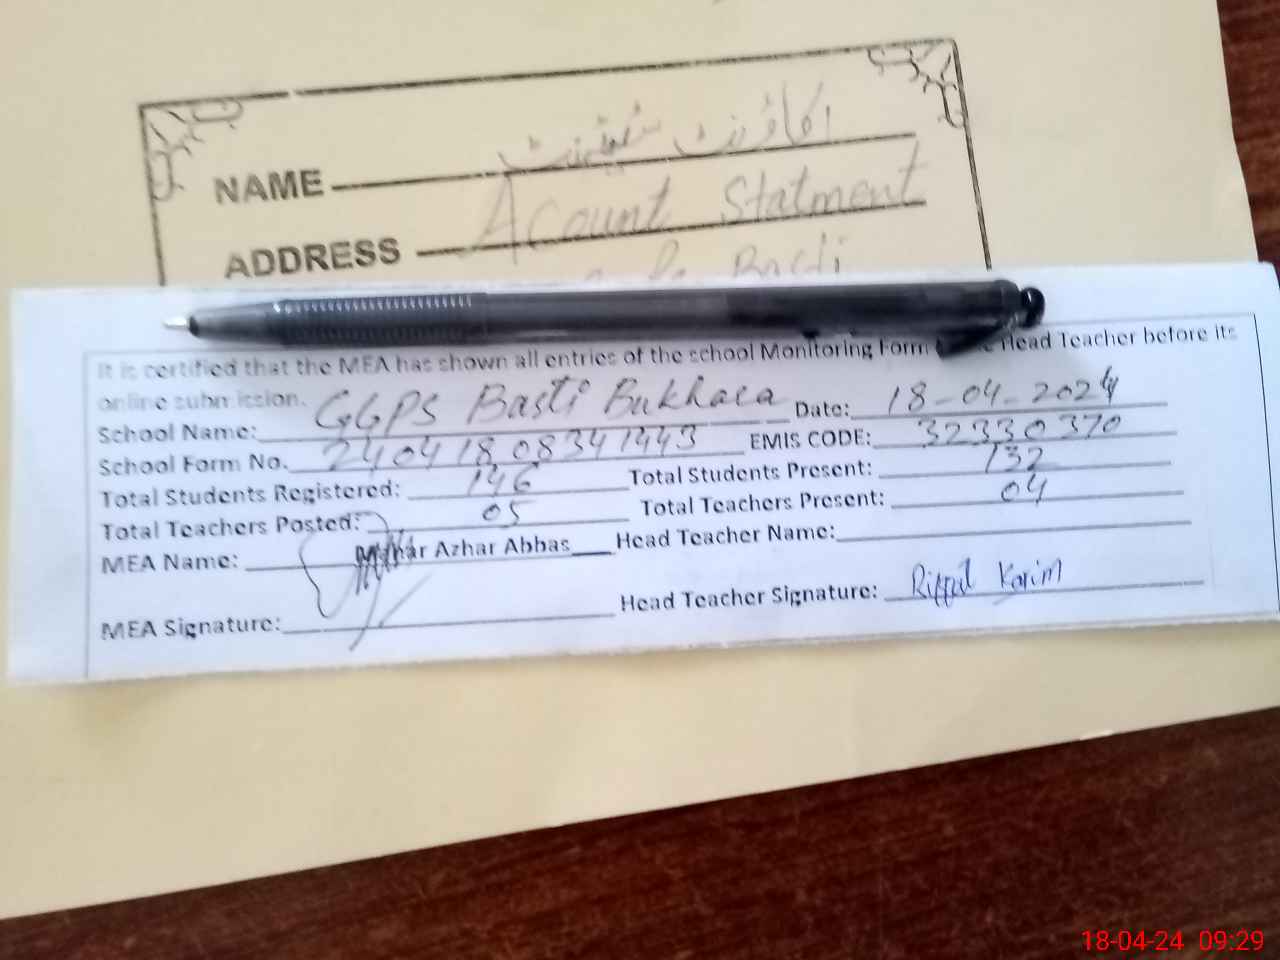 NAME اکاؤنٹ سٹیٹمنٹ
ADDRESS Acount Statment
Basti
It is certified that the MEA has shown all entries of the school Monitoring Form Head Teacher before its
online submission.
School Name: GGPS Basti Bukhara Date: 18-04-2024
School Form No. 24041808341443 EMIS CODE: 32330370
Total Students Registered: 146 Total Students Present: 132
Total Teachers Posted: 05 Total Teachers Present: 04
MEA Name: Azhar Abbas Head Teacher Name:
MEA Signature: Head Teacher Signature: Karim
18-04-24 09:29